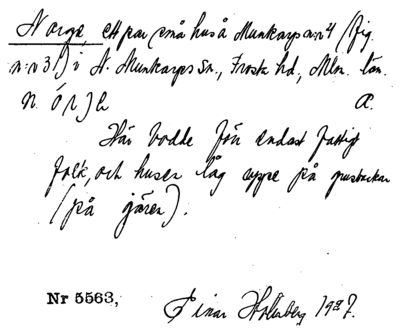 Norge ett par små hus å Munkarps n:r 4 (fig.
n:r 31) i N. Munkarps sn., Frosta hd, Mlm. län.
a.
Här bodde förr endast fattigt
folk, och husen låg uppe på
(på gären).
Nr 5563,
Einar Hallberg 1927.